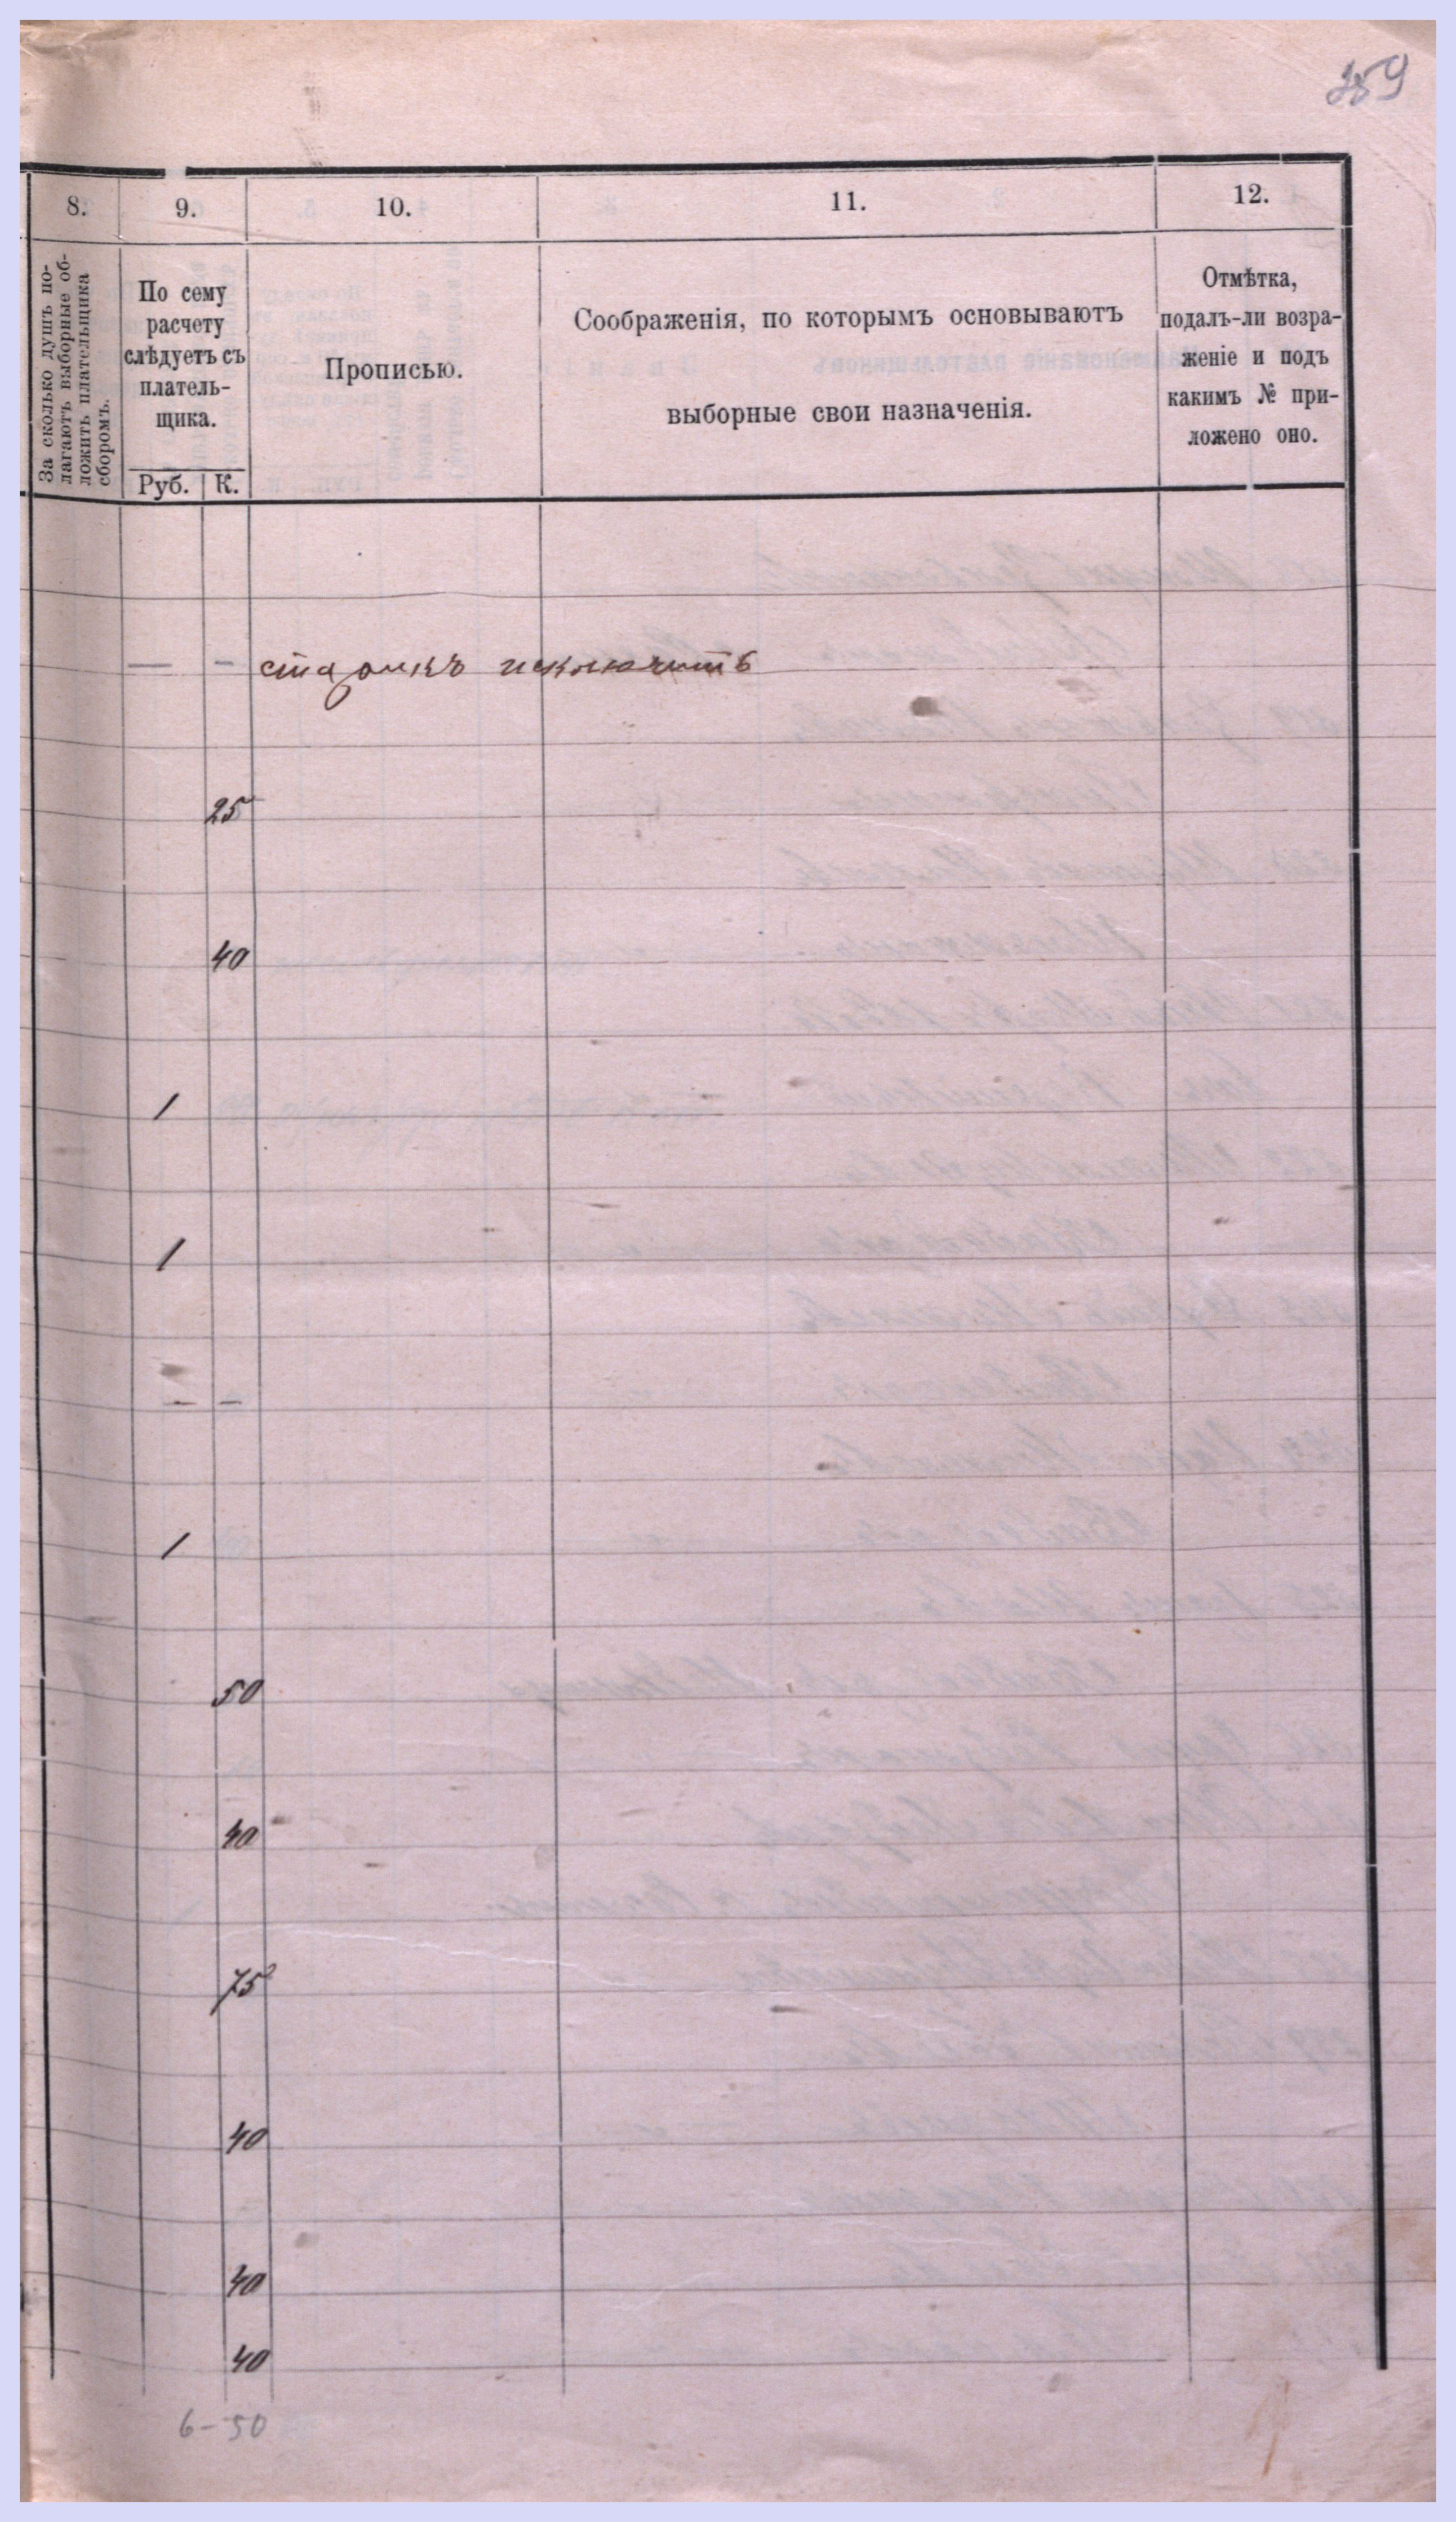 359
8. 9. 10. 11. 12.
За сколько душъ по-
лагаютъ выборные об-
ложить плательщика
сборомъ.
По сему
расчету
слѣдуетъ съ
платель-
щика.
Руб. К.
Прописью.
Соображенія, по которымъ основываютъ
выборные свои назначенія.
Отмѣтка,
подалъ-ли возра-
женіе и подъ
какимъ № при-
ложено оно.
— — старикъ исключить
25
40
1
1
— —
1
50
40
75
40
40
40
6-50